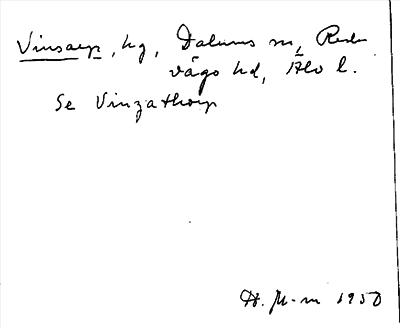 Vinsarp, hg, Dalums sn, Rede
vägs hd, Älvs l.
Se Vinzathorp
H. M-m 1950